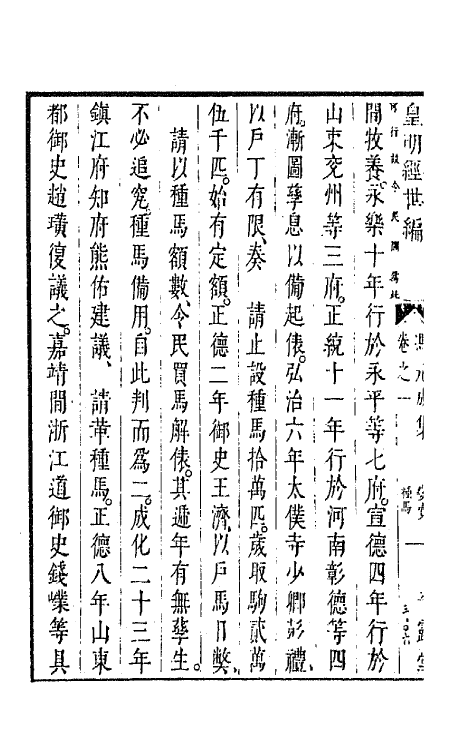 皇明經世編
卷之一
種馬
間牧養永樂十年行於永平等七府。宣德四年行於
山東兖州等三府。正統十一年行於河南彰德等四
府。漸圖孳息以備起俵。弘治六年太僕寺少卿彭禮、
以戶丁有限、奏　請止設種馬拾萬匹。歲取駒貳萬
伍千匹。始有定額。正德二年御史王濟、以戶馬日獘、
請以種馬額數、令民買馬解俵。其遞年有無孳生。
不必追究。種馬備用。自此判而爲二。成化二十三年
鎮江府知府熊佑建議、請革種馬。正德八年山東
都御史趙璜復議之。嘉靖間浙江道御史錢嶫等具